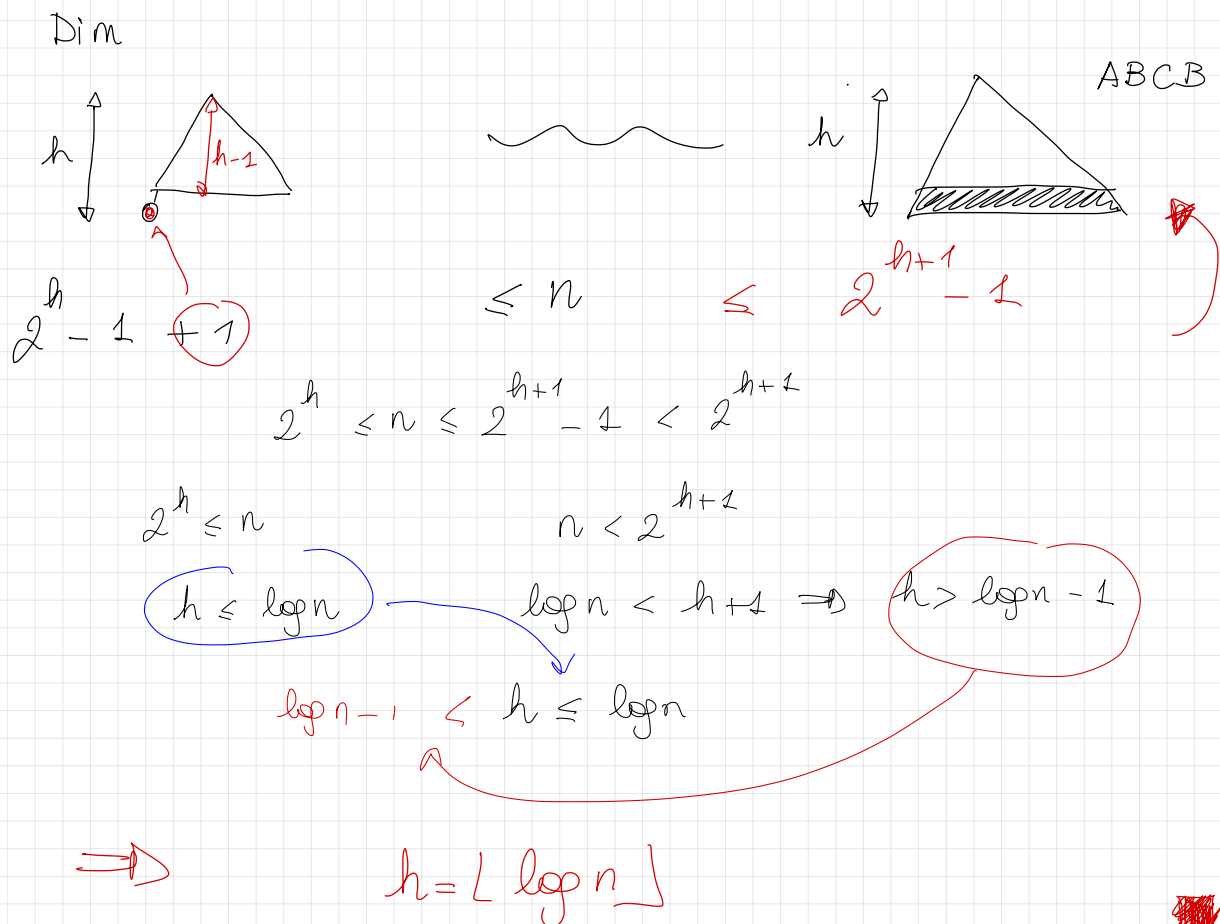 Dim
ABCB
h h-1 h
2^h - 1 + 1 ≤ n ≤ 2^{h+1} - 1
2^h ≤ n ≤ 2^{h+1} - 1 < 2^{h+1}
2^h ≤ n n < 2^{h+1}
h ≤ log n log n < h+1 ⇒ h > log n - 1
log n - 1 < h ≤ log n
⇒ h = ⌊ log n ⌋